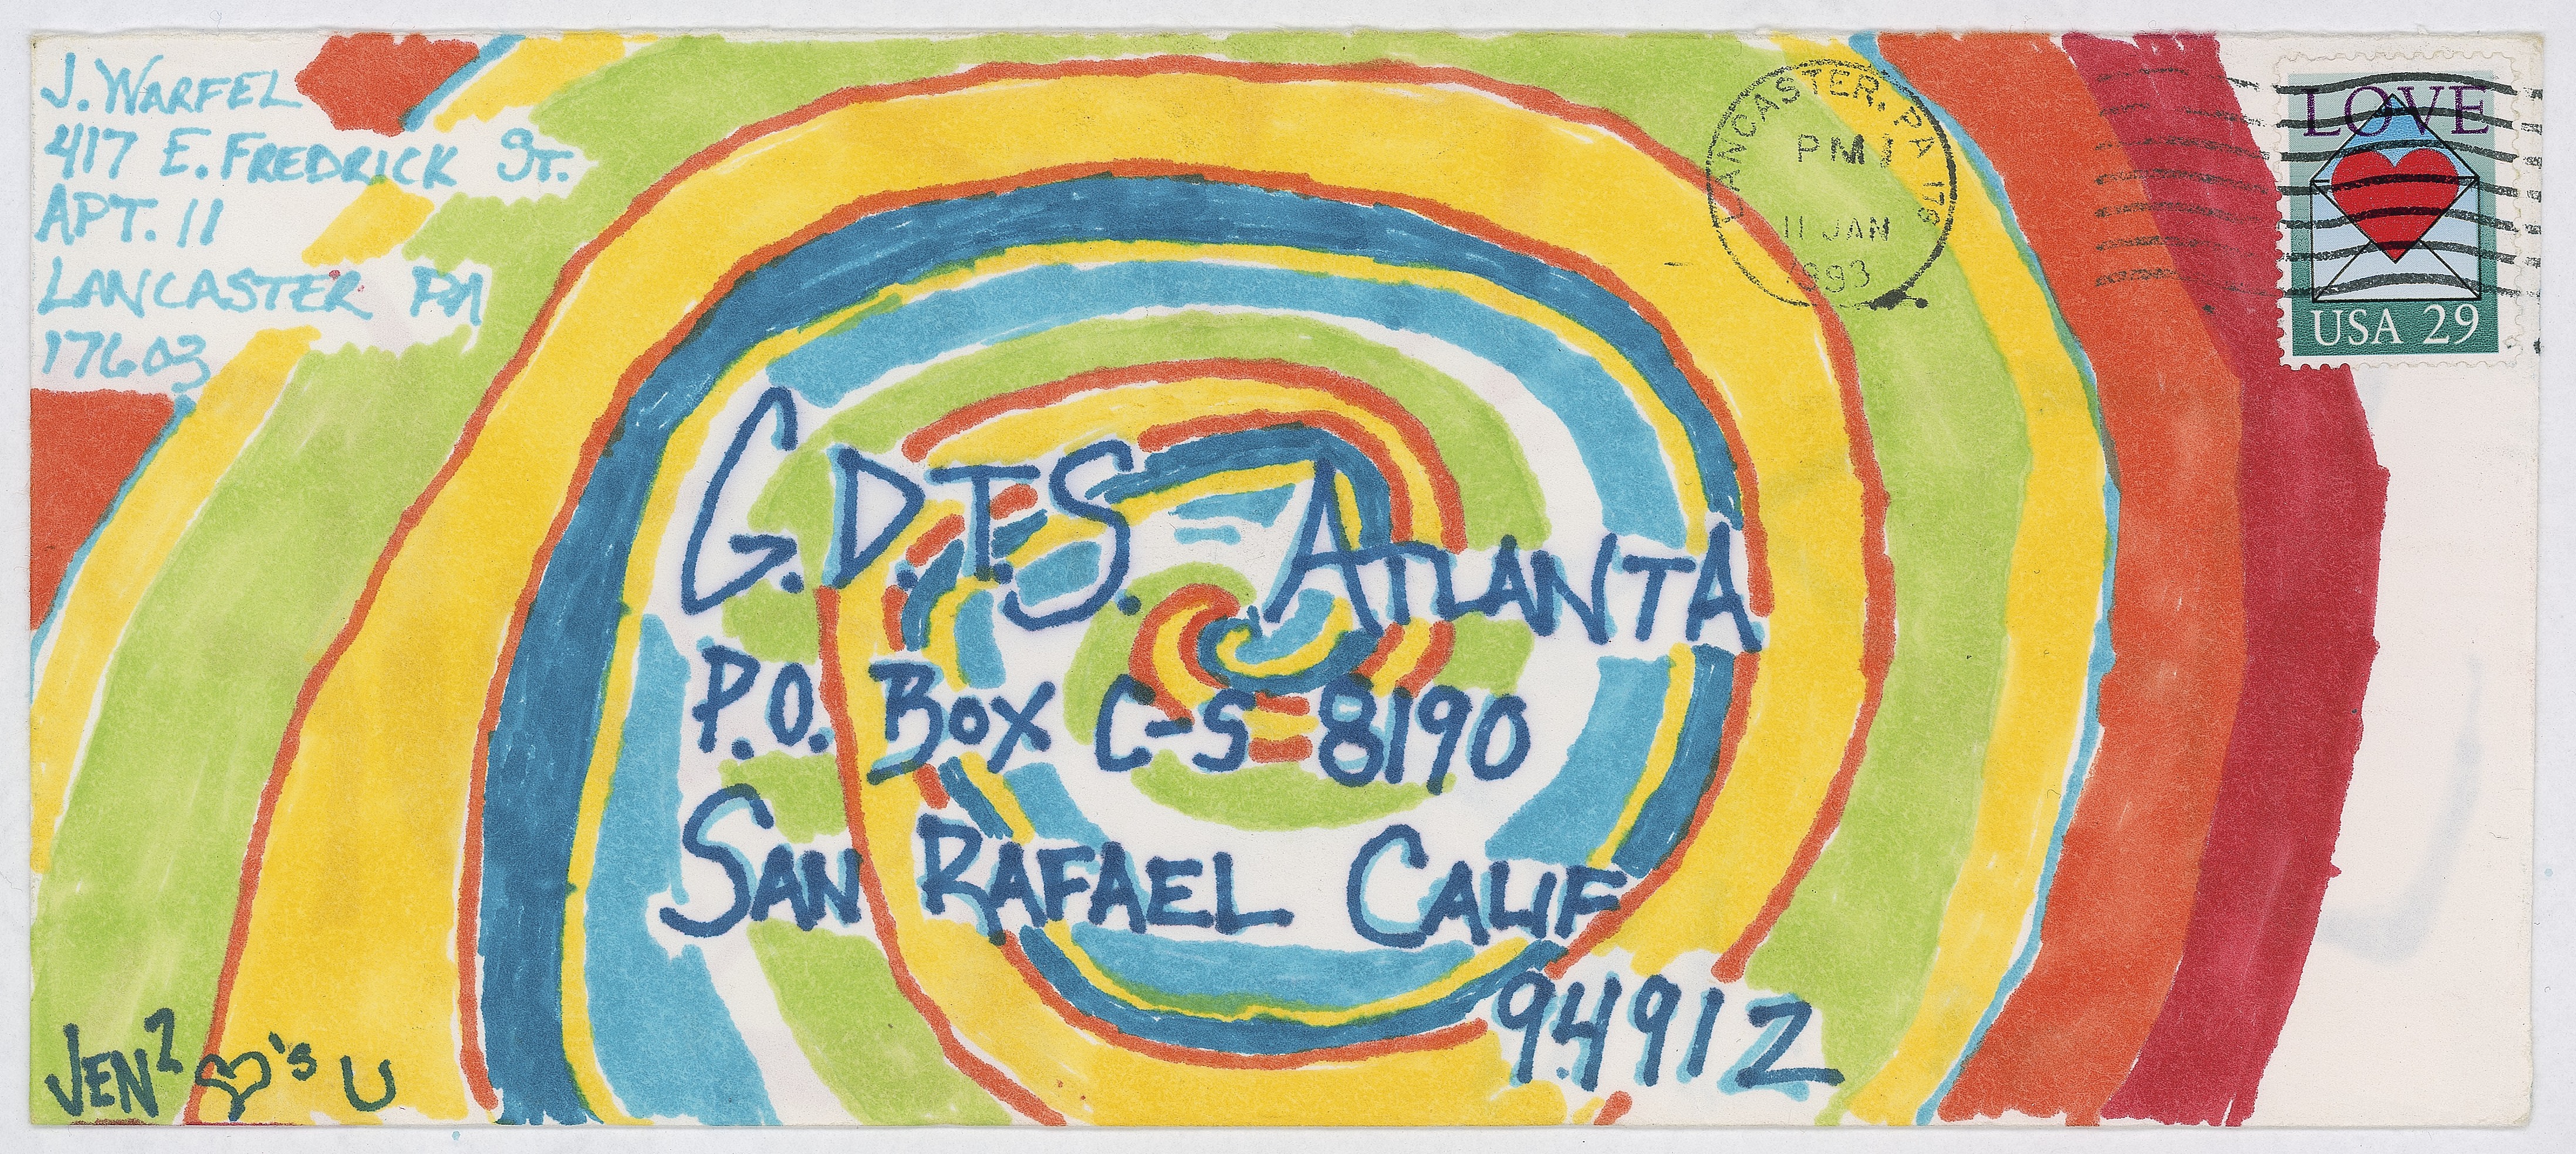 J. WARFEL
417 E. FREDRICK ST.
APT. 11
LANCASTER PA
17603
LANCASTER, PA 176
PM
11 JAN
1993
LOVE
USA 29
G.D.T.S. ATLANTA
P.O. BOX C-S-8190
SAN RAFAEL CALIF
94912
JEN² ♡'s U